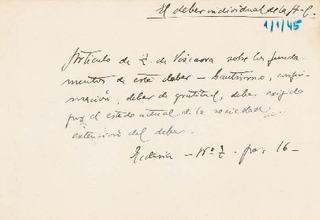 El deber individual de la A.C.
1/1/45
Artículo de Z. de Vizcarra sobre los funda-
mentos de este deber — bautismo, confir-
mación, deber de gratitud, deber exigido
por el estado actual de la sociedad.
extensión del deber.
Ecclesia — Nº 7 - pág. 16 —